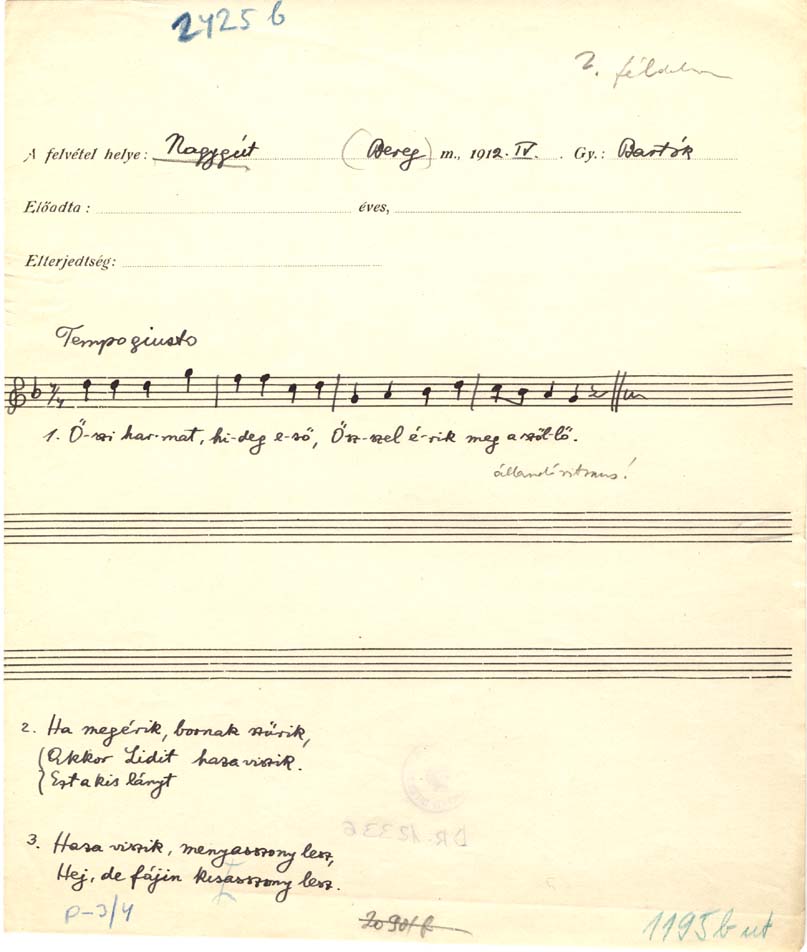 2425 b
2.
A felvétel helye: Nagygút (Bereg) m., 1912. IV. Gy.: Bartók
Előadta: éves,
Elterjedtség:
Tempo giusto
1. Ő-szi har-mat, hi-deg e-ső, Ősz-szel é-rik meg a szől-lő.
állandó ritmus!
2. Ha megérik, bornak szűrik,
(Akkor Lidit haza viszik.
Ezt a kis lányt
DR-12336
3. Haza viszik, menyasszony lesz,
Hej, de fájin kisasszony lesz.
P-3/4
1195 b ut